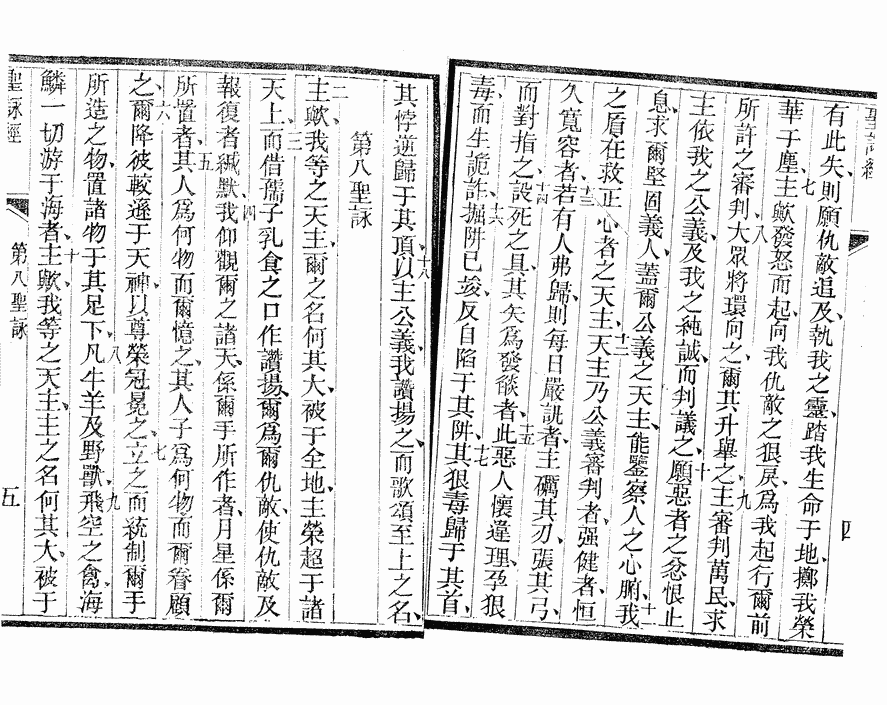 聖詠經
四
有此失、則願仇敵追及、執我之靈、踏我生命于地、擲我榮
華于塵、七主歟、發怒而起、向我仇敵之狠戾、爲我起行爾前
所許之審判、八大眾將環向之、爾其升舉之、九主審判萬民、求
主依我之公義、及我之純誠、而判議之、十願惡者之忿恨止
息、求爾堅固義人、蓋爾公義之天主、能鑒察人之心腑、十一我
之盾在救正心者之天主、十二天主乃公義審判者、强健者、恒
久寬容者、十三若有人弗歸、則每日嚴訿者、主礪其刃、張其弓、
而對指之、十四設死之具、其矢爲發燄者、十五此惡人懷違理、孕狠
毒而生詭詐、十六掘阱已 、反自陷于其阱、十七其狠毒歸于其首、
其悖逆歸于其頂、十八以主公義、我讚揚之、而歌頌至上之名、
第八聖詠
二主歟、我等之天主、爾之名何其大、被于全地、主榮超于諸
天上、三而借孺子乳食之口、作讚揚、爾爲爾仇敵、使仇敵及
報復者緘默、四我仰觀爾之諸天、係爾手所作者、月星係爾
所置者、五其人爲何物、而爾憶之、其人子爲何物、而爾眷顧
之、六爾降彼較遜于天神、以尊榮冠冕之、七立之而統制爾手
所造之物、置諸物于其足下、八凡牛羊及野獸、九飛空之禽、海
鱗一切游于海者、十主歟、我等之天主、主之名何其大、被于
聖詠經
第八聖詠
五